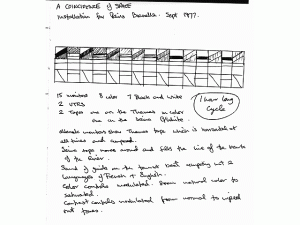 A COINCIDENCE of SPACE
Installation for Paris Biennalle. Sept 1977.
15 monitors 8 color 7 Black and White
2 VTRS
2 Tapes one on the Thames in color
one on the Seine B/White.
1 hour long
Cycle
Alternate monitors show Thames tape which is horizontal at
all times and
Seine tape moves around and fills the line of the banks
of the River.
Sound of guides on the tourist boat 2
Languages of French + English.
Color controls modulated. From natural color to
saturated.
Contrast controls modulated from normal to
out tones.